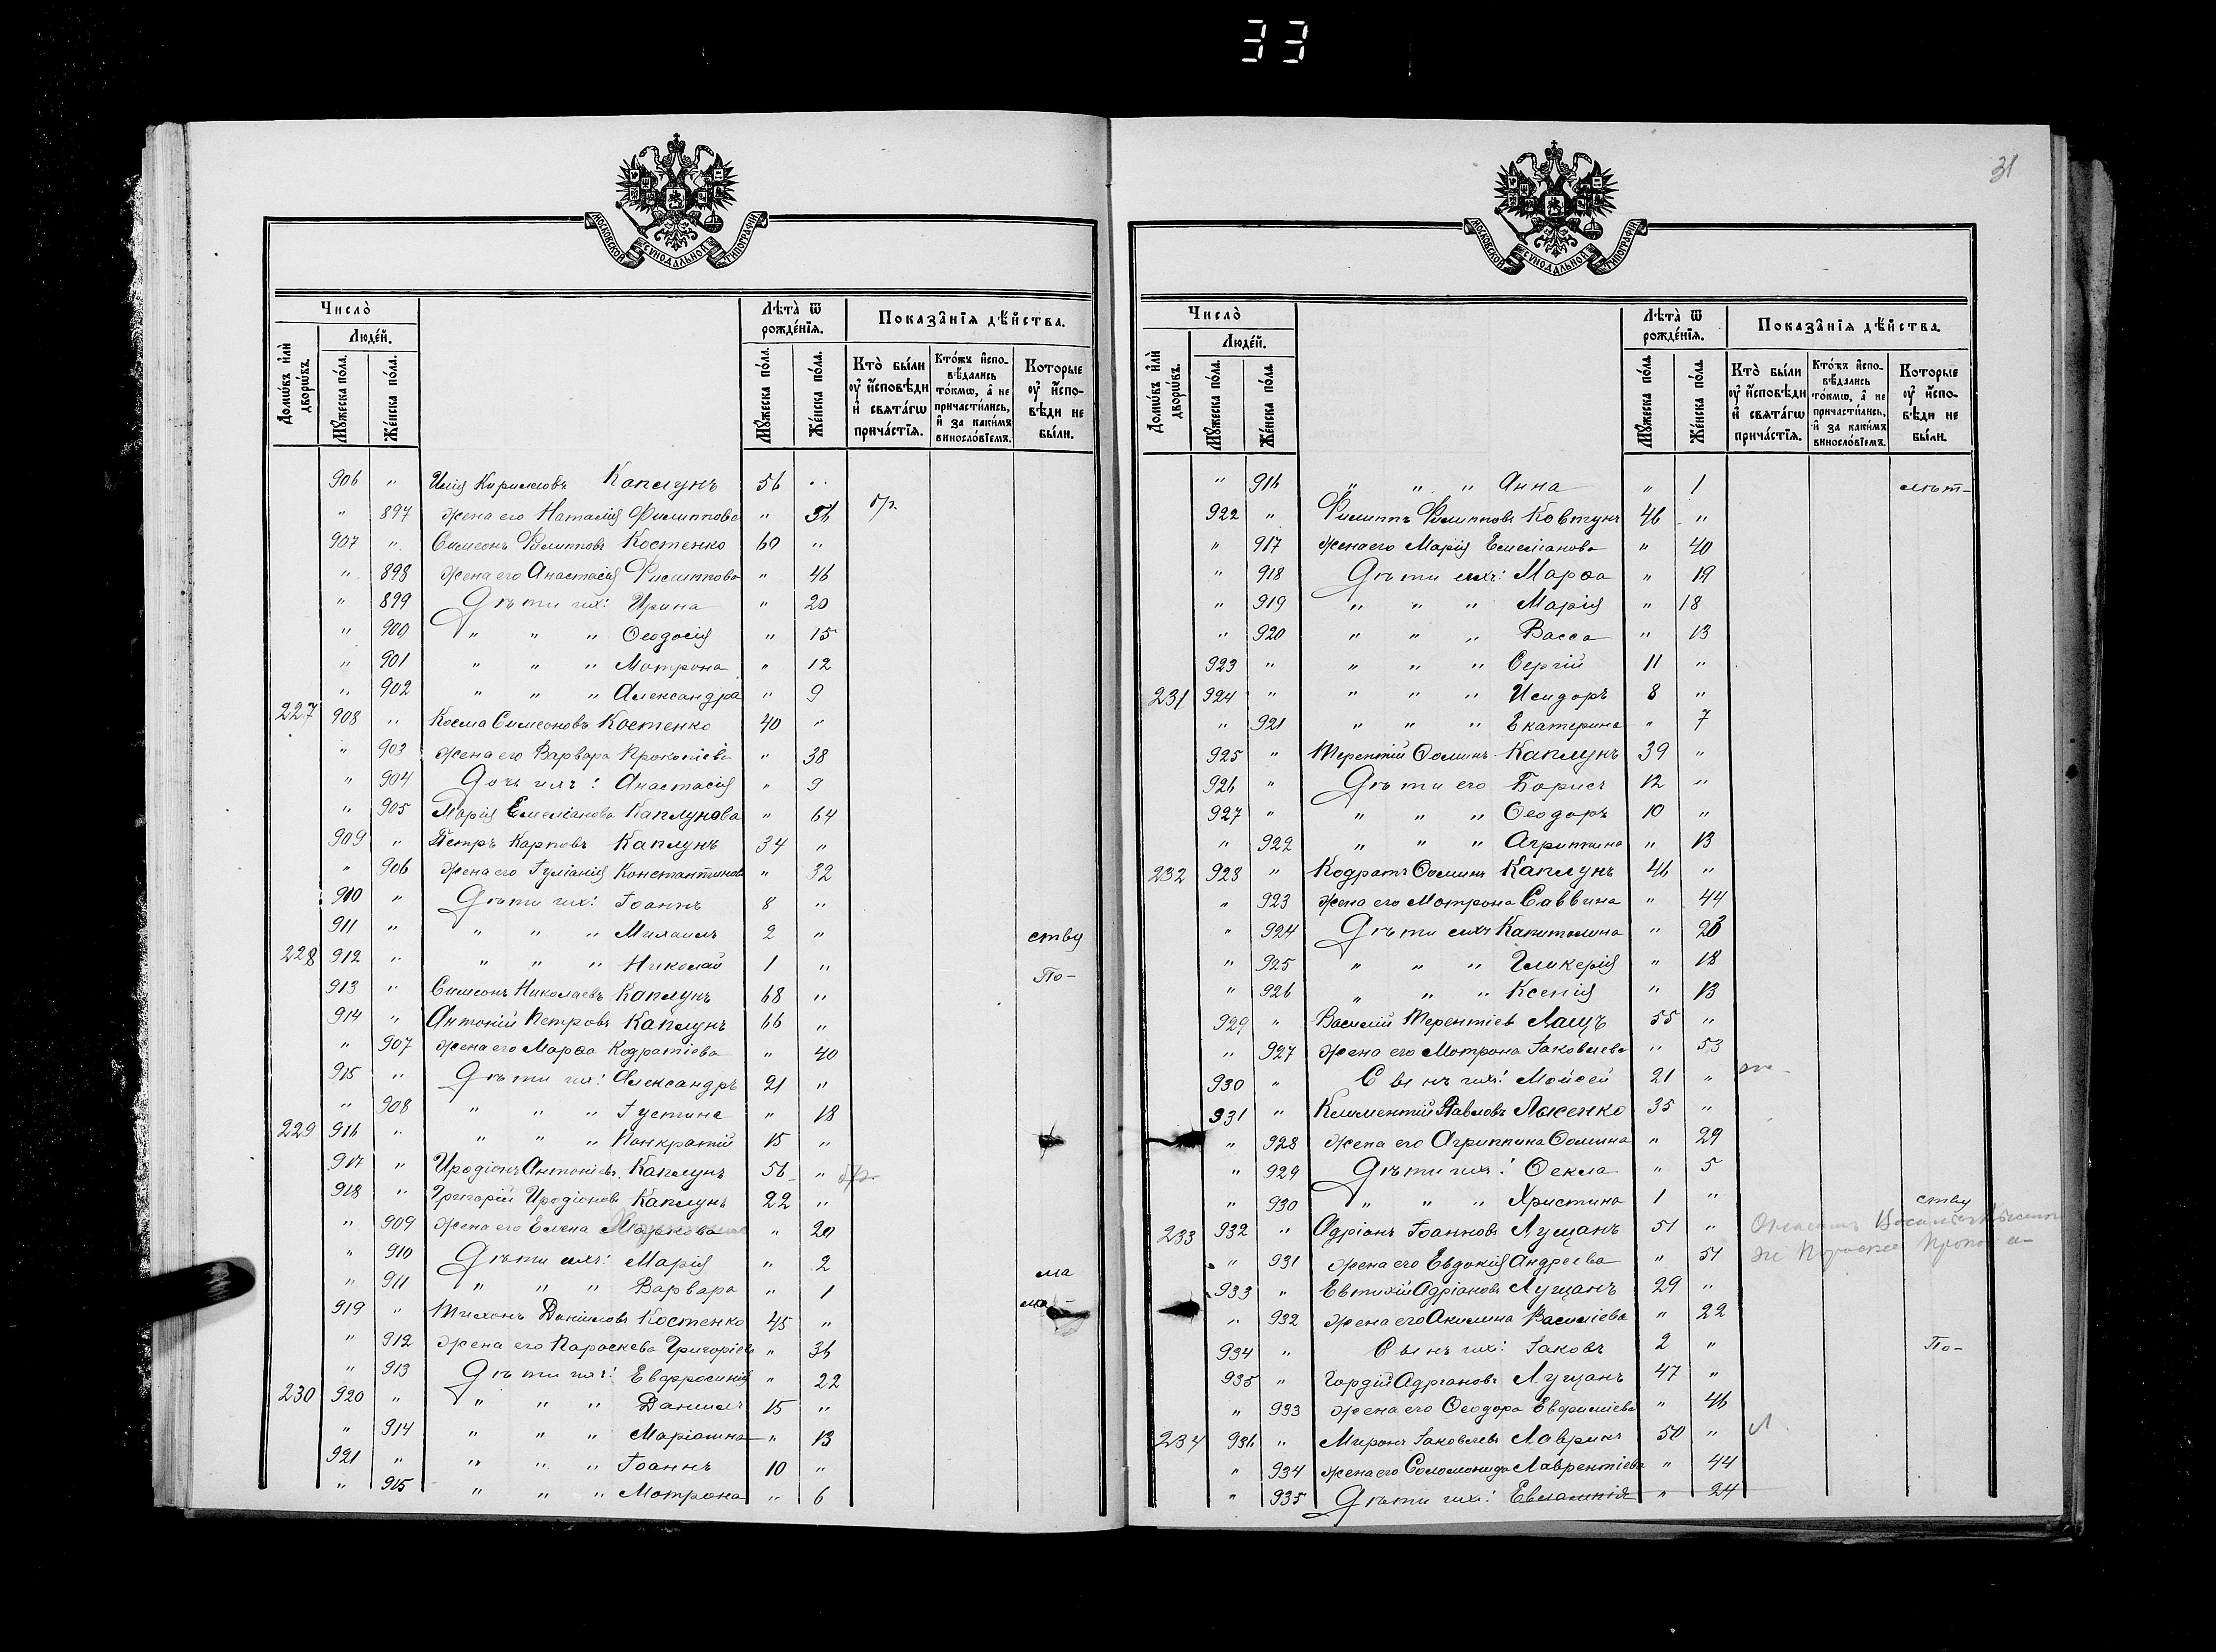 33
МОСКОВСКОЙ СѴНОДАЛЬНОЙ ТИПОГРАФІИ
Число̀
Домѡ́въ и҆лѝ дворѡ́въ.
Людéй.
Мꙋ́жеска по́ла.
Же́нска по́ла.
Лѣта̀ ѿ рожде́нїѧ.
Мꙋ́жеска по́ла.
Же́нска по́ла.
Показа̑нїѧ дѣ́йства.
Кто̀ бы́ли оу҆ и҆́сповѣди и҆ свѧта́гѡ прича́стїѧ.
Кто́жъ и҆спо-вѣ́дались то́кмѡ, а҆ не причасти́лись, и҆ за каки́мъ винослóвїемъ.
Которые оу҆ и҆́спо-вѣди не бы́ли.
906 " Илія Кирилловъ Каплунъ 56 "
" 897 жена его Наталія Филиппова " 56
907 " Симеонъ Филипповъ Костенко 60 "
" 898 жена его Анастасія Филиппова " 46
" 899 Дѣти ихъ: Ирина " 20
" 900 " " " Ѳеодосія " 15
" 901 " " " Мотрона " 12
" 902 " " " Александра " 9
227 908 " Косма Симеоновъ Костенко 40 "
" 903 жена его Варвара Прокопіева " 38
" 904 Дочь ихъ: Анастасія " 9
" 905 Марія Емеліанова Каплунова " 64
909 " Петръ Карповъ Каплунъ 34 "
" 906 жена его Іуліанія Константинова " 32
910 " Дѣти ихъ: Іоаннъ 8 "
911 " " " " Михаилъ 2 " ству
228 912 " " " " Николай 1 " По-
913 " Симеонъ Николаевъ Каплунъ 68 "
914 " Антоній Петровъ Каплунъ 66 "
" 907 жена его Марѳа Кодратіева " 40
915 " Дѣти ихъ: Александръ 21 "
" 908 " " " Іустина " 18
229 916 " " " " Панкратій 15 "
917 " Иродіонъ Антоніевъ Каплунъ 56 "
918 " Григорій Иродіоновъ Каплунъ 22 "
" 909 жена его Елена Маркова " 20
" 910 Дѣти ихъ: Марія " 2
" 911 " " " Варвара " 1 ма
919 " Тихонъ Даніиловъ Костенко 45 " ма-
" 912 жена его Параскева Григоріева " 36
" 913 Дѣти ихъ: Евфросинія " 22
230 920 " " " " Даніилъ 15 "
" 914 " " " Маріамна " 13
921 " " " " Іоаннъ 10 "
" 915 " " " Мотрона " 6
31
МОСКОВСКОЙ СѴНОДАЛЬНОЙ ТИПОГРАФІИ
Число̀
Домѡ́въ и҆лѝ дворѡ́въ.
Людéй.
Мꙋ́жеска по́ла.
Же́нска по́ла.
Лѣта̀ ѿ рожде́нїѧ.
Мꙋ́жеска по́ла.
Же́нска по́ла.
Показа̑нїѧ дѣ́йства.
Кто̀ бы́ли оу҆ и҆́сповѣди и҆ свѧта́гѡ прича́стїѧ.
Кто́жъ и҆спо-вѣ́дались то́кмѡ, а҆ не причасти́лись, и҆ за каки́мъ винослóвїемъ.
Которые оу҆ и҆́спо-вѣди не бы́ли.
" 916 " " " Анна " 1 лѣт-
922 " Филиппъ Филипповъ Ковтунъ 46 "
" 917 жена его Марія Емеліанова " 40
" 918 Дѣти ихъ: Марѳа " 19
" 919 " " " Марія " 18
" 920 " " " Васса " 13
923 " " " " Сергій 11 "
231 924 " " " " Исидоръ 8 "
" 921 " " " Екатерина " 7
925 " Терентій Ѳоминъ Каплунъ 39 "
926 " Дѣти его Борисъ 12 "
927 " " " " Ѳеодоръ 10 "
" 922 " " " Агриппина " 13
232 928 " Кодратъ Ѳоминъ Каплунъ 46 "
" 923 жена его Мотрона Саввина " 44
" 924 Дѣти ихъ Капитолина " 20
" 925 " " " Гликерія " 18
" 926 " " " Ксенія " 13
929 " Василій Терентіев Лащъ 55 "
" 927 жена его Мотрона Іаковлева " 53
930 " Сынъ ихъ: Мойсей 21 "
931 " Климентій Павловъ Лысенко 35 "
" 928 жена его Агриппина Ѳомина " 29
" 929 Дѣти ихъ: Ѳекла " 5
" 930 " " " Христина 1 " ству
233 932 " Адріанъ Іоанновъ Лущанъ 51 "
" 931 жена его Евдокія Андреева " 51
933 " Евтихій Адріановъ Лущанъ 29 "
" 932 жена его Акилина Василіева " 22
934 " Сынъ ихъ: Іаковъ 2 " По-
935 " Гордій Адріановъ Лущанъ 47 "
" 933 жена его Ѳеодора Евфиміева " 46
234 936 " Миронъ Іаковлевъ Лавринъ 50 "
" 934 жена его Соломонида Лаврентіева " 44
" 935 Дѣти ихъ: Евлампія " 24